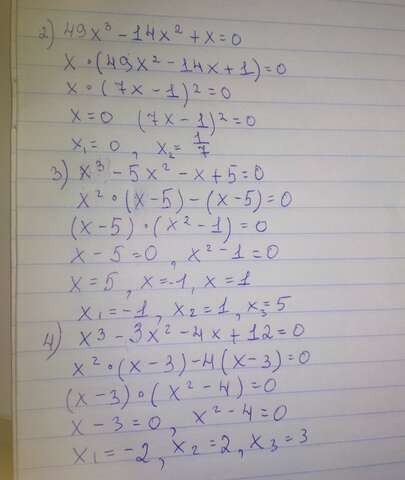 2) 49x³ - 14x² + x = 0
x • (49x² - 14x + 1) = 0
x • (7x - 1)² = 0
x = 0 (7x - 1)² = 0
x₁ = 0 , x₂ = 1/7
3) x³ - 5x² - x + 5 = 0
x² • (x - 5) - (x - 5) = 0
(x - 5) • (x² - 1) = 0
x - 5 = 0 , x² - 1 = 0
x = 5 , x = -1 , x = 1
x₁ = -1 , x₂ = 1 , x₃ = 5
4) x³ - 3x² - 4x + 12 = 0
x² • (x - 3) - 4(x - 3) = 0
(x - 3) • (x² - 4) = 0
x - 3 = 0 , x² - 4 = 0
x₁ = -2 , x₂ = 2 , x₃ = 3